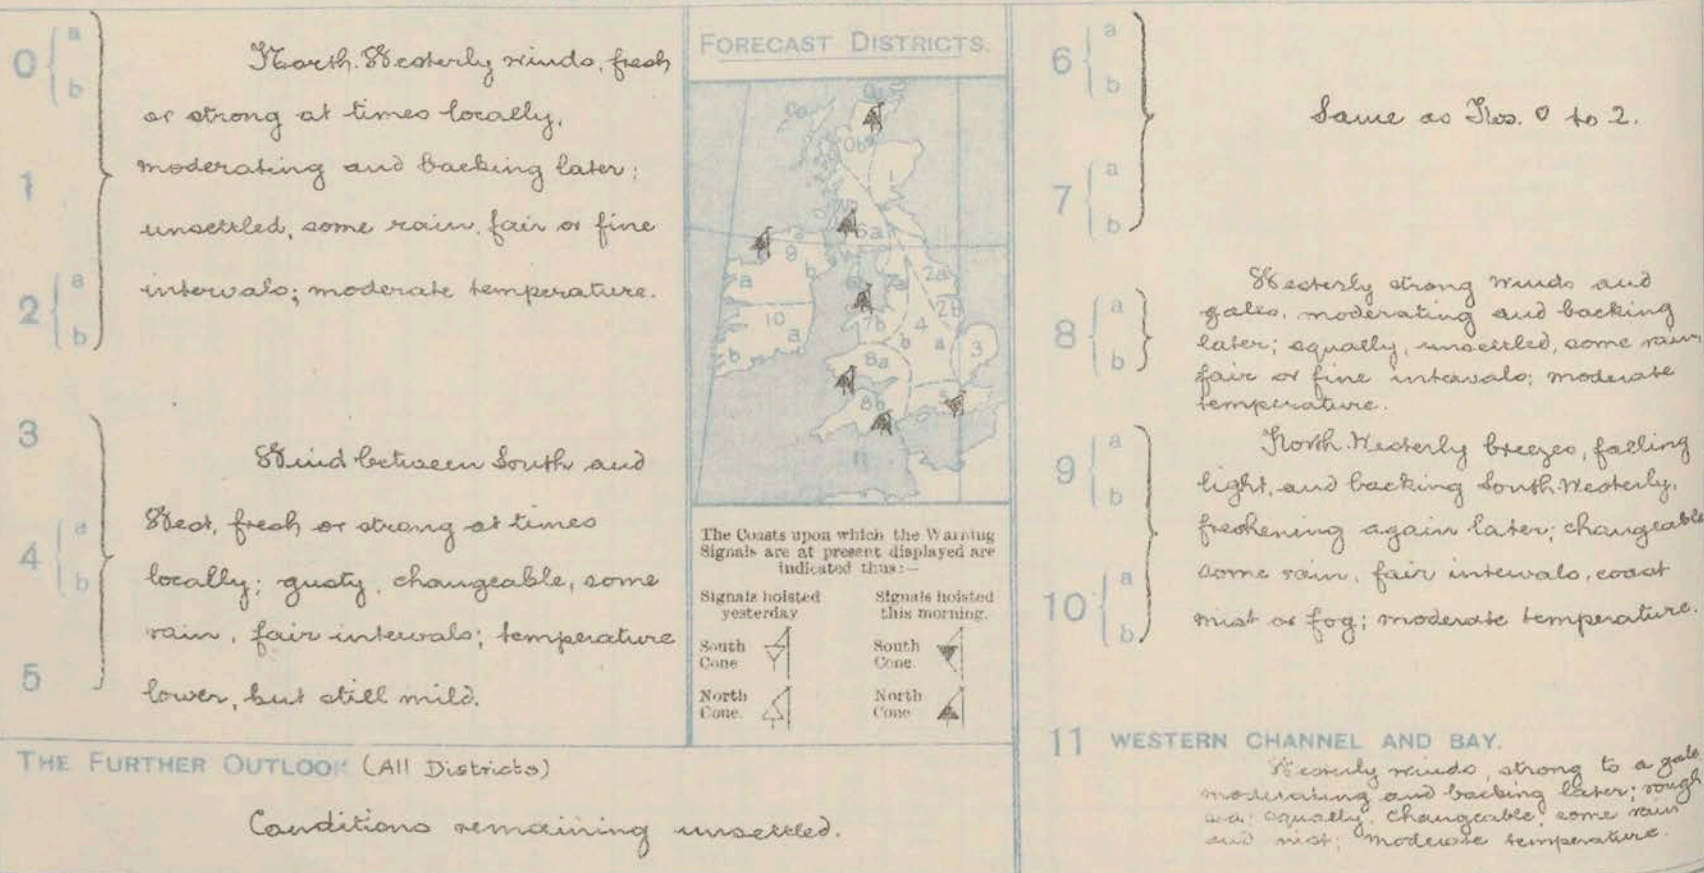 0 { a b
1
2 { a b
North-Westerly winds, fresh
or strong at times locally,
moderating and backing later;
unsettled, some rain, fair or fine
intervals; moderate temperature.
3
4 { a b
5
Wind between South and
West, fresh or strong at times
locally; gusty, changeable, some
rain, fair intervals; temperature
lower, but still mild.
THE FURTHER OUTLOOK (All Districts)
Conditions remaining unsettled.
FORECAST DISTRICTS.
0a
0b
6a
9
a
b
10
a
b
7b
2a
2b
4
b
a
3
8a
8b
5
11
The Coasts upon which the Warning
Signals are at present displayed are
indicated thus:—
Signals hoisted
yesterday
South
Cone
North
Cone.
Signals hoisted
this morning.
South
Cone.
North
Cone
6 { a b
7 { a b
Same as Nos. 0 to 2.
8 { a b
Westerly strong winds and
gales, moderating and backing
later; squally, unsettled, some rain,
fair or fine intervals; moderate
temperature.
9 { a b
10 { a b
North-Westerly breezes, falling
light, and backing South-Westerly,
freshening again later; changeable
some rain, fair intervals, coast
mist or fog; moderate temperature.
11 WESTERN CHANNEL AND BAY.
Westerly winds, strong to a gale,
moderating and backing later; rough
sea; squally, changeable, some rain
and mist; moderate temperature.